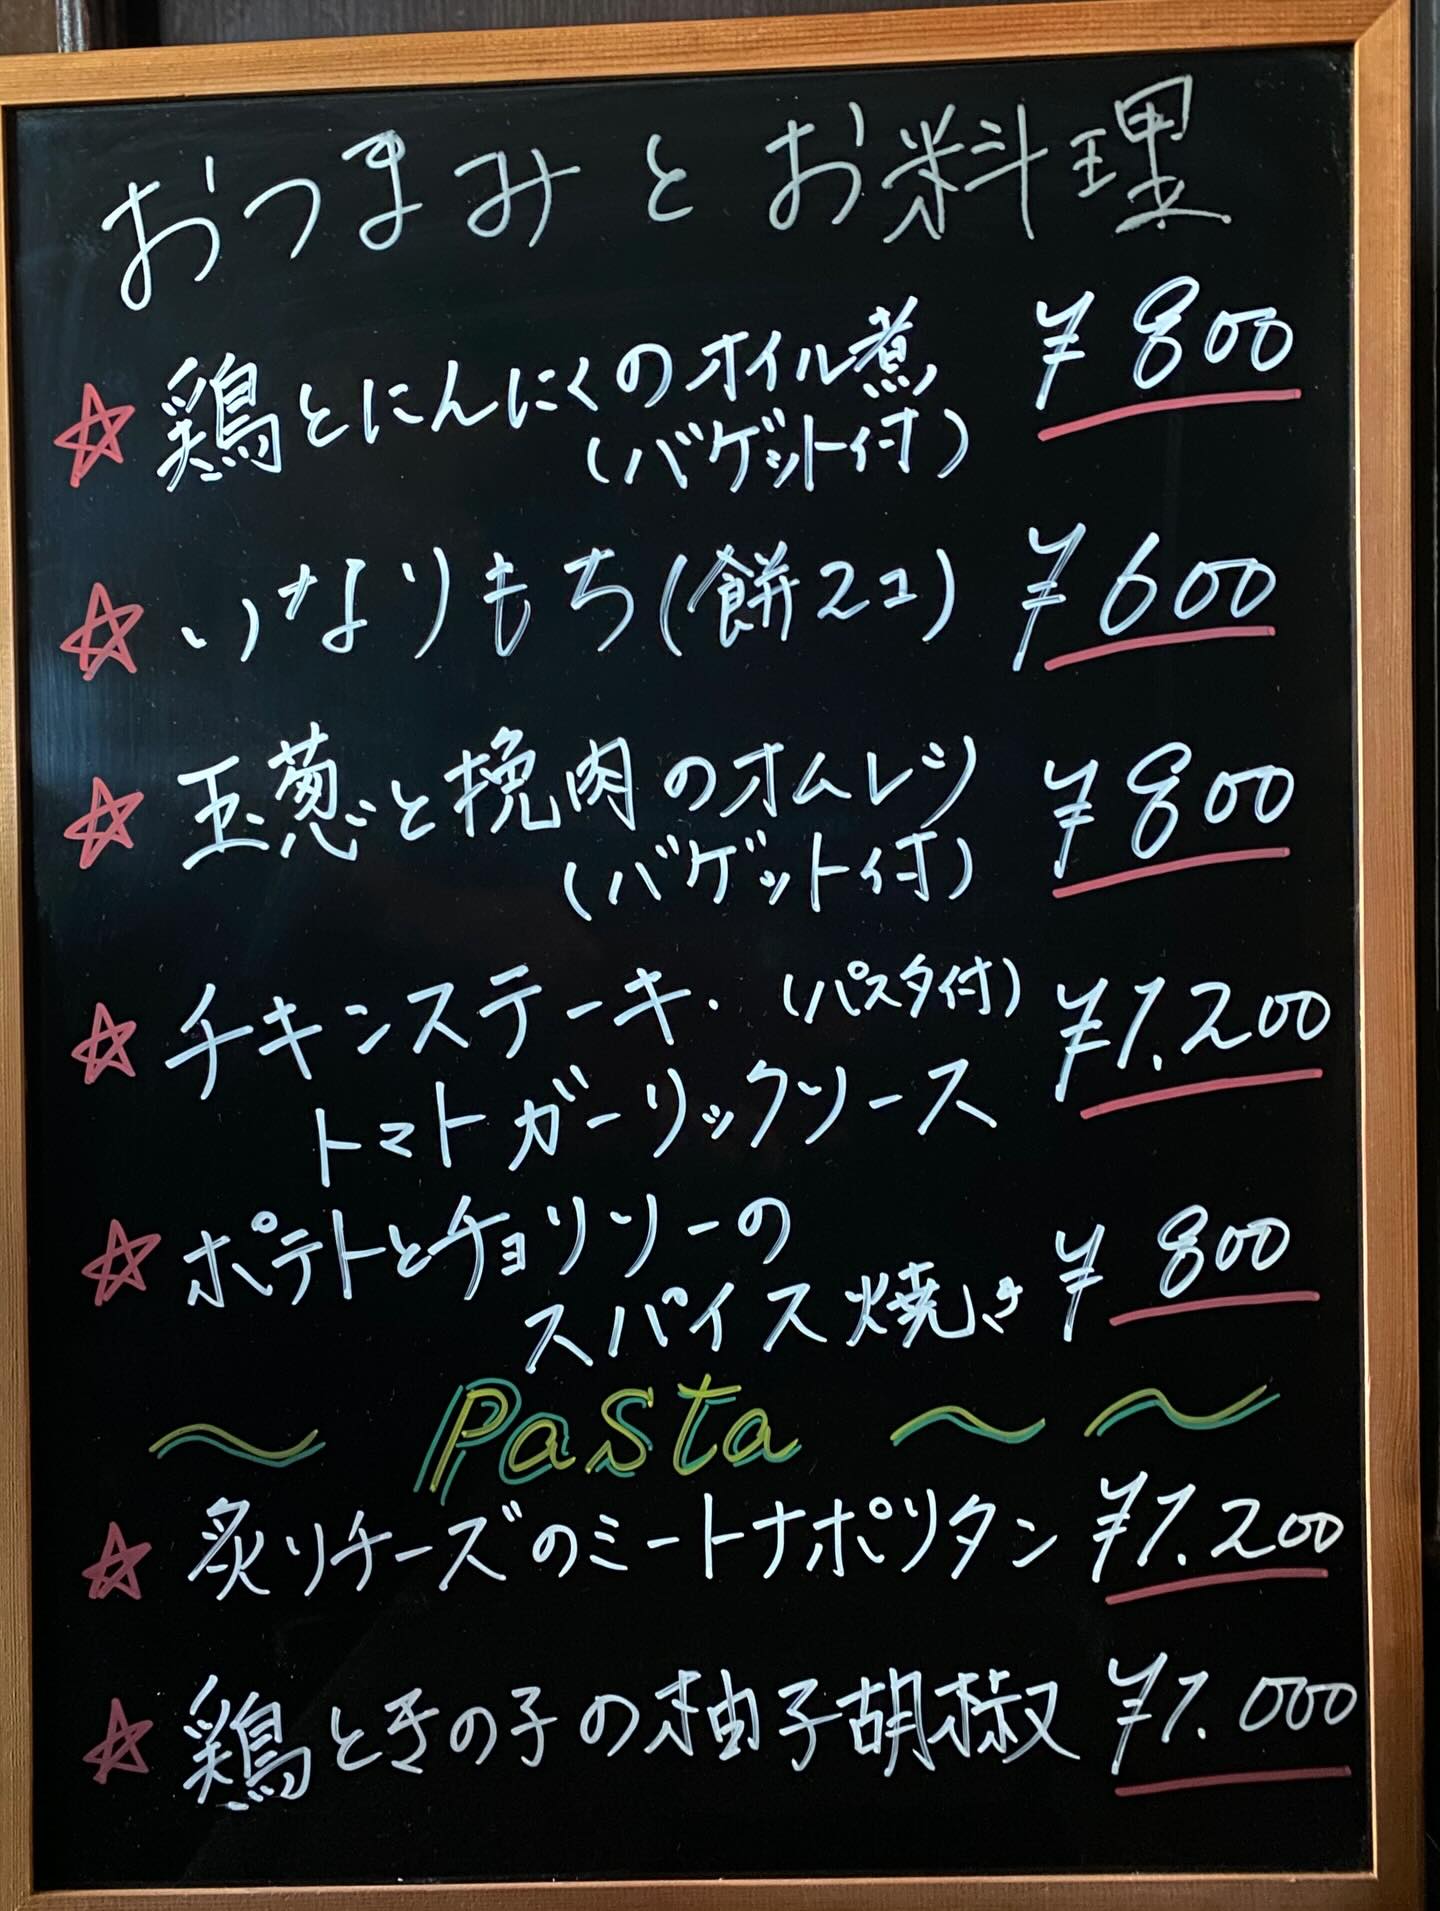 おつまみとお料理
☆鶏とにんにくのオイル煮 ¥800
(バゲット付)
☆いなりもち(餅2コ) ¥600
☆玉葱と挽肉のオムレツ ¥800
(バゲット付)
☆チキンステーキ. (パスタ付) ¥1.200
トマトガーリックソース
☆ポテトとチョリソーの
スパイス焼き ¥800
〜 Pasta 〜〜
☆炙りチーズのミートナポリタン ¥1.200
☆鶏ときの子の柚子胡椒 ¥1.000